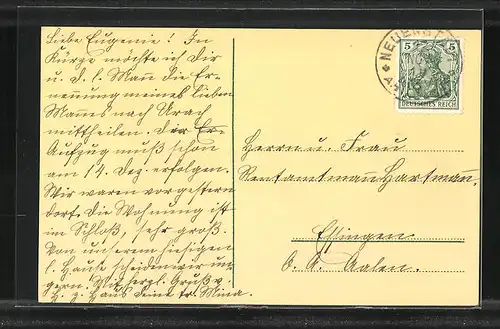 Liebe Eugenie! In
Kürze möchte ich Dir
u. d. l. Mann die Er-
nennung meines lieben
Mannes nach Urach
mittheilen. Der
Aufzug muß schon
am 14. Dez. erfolgen.
Wir waren vorgestern
dort. Die Wohnung ist
im Schloß, sehr groß.
Von unserem hiesigen
l. Hause scheiden wir un-
gern. Mit herzl. Gruß v.
H. z. Haus Deine tr. Mina.
NEUEN
5 5
DEUTSCHES REICH
Herrn u. Frau
Rentamtmann Hartmann
Essingen
O. A. Aalen.